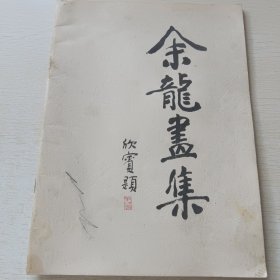 余龍畫集
欣賓題